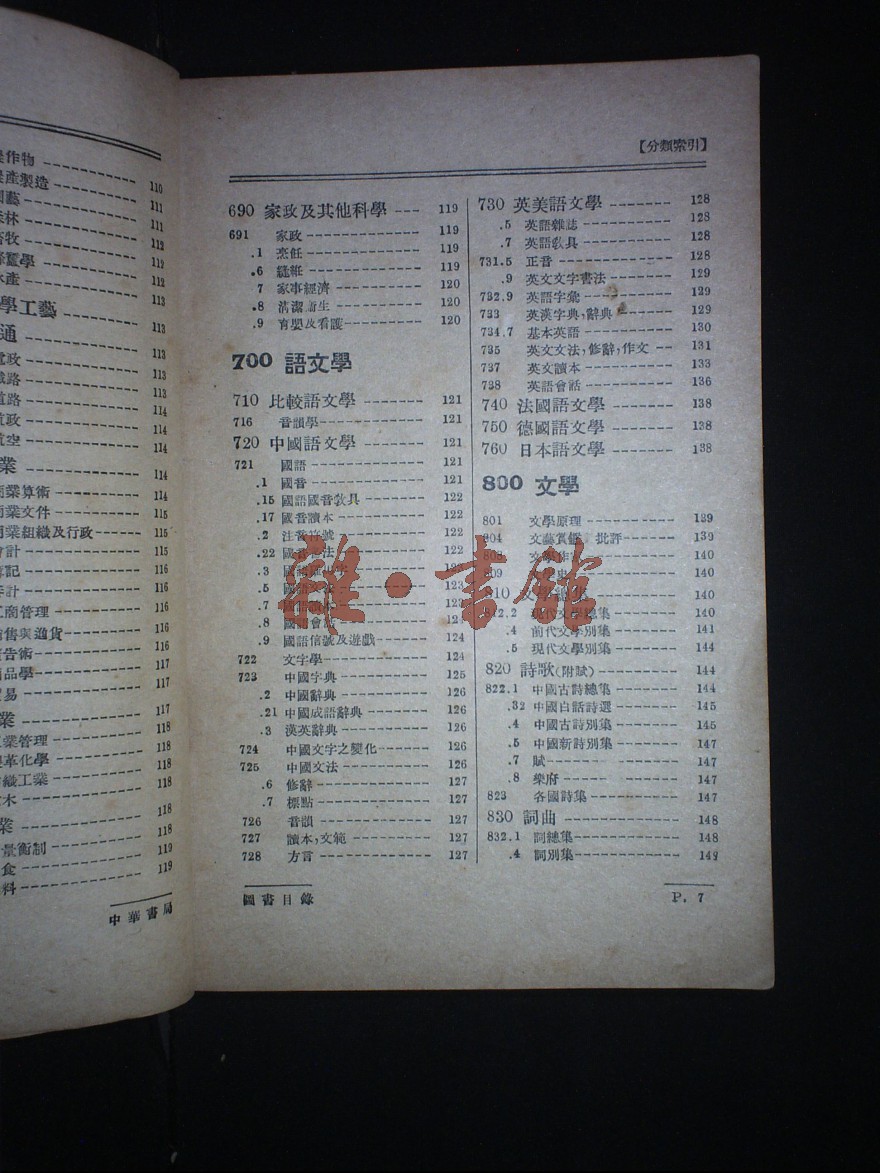 作物 110
產製造 111
藝 111
林 112
牧 112
蠶學 112
產 113
學工藝 113
通 113
政 113
路 113
路 114
政 114
空 114
業 114
業算術 114
業文件 115
業組織及行政 115
會計 115
簿記 116
計 116
工商管理 116
售與進貨 116
告術 117
品學 117
貿易 117
業 117
業管理 118
革化學 118
織工業 118
木 118
業 118
量衡制 118
食 119
料 119
中華書局
【分類索引】
690 家政及其他科學 119
691 家政 119
.1 烹飪 119
.6 縫紝 119
7 家事經濟 120
.8 清潔衛生 120
.9 育嬰及看護 120
700 語文學
710 比較語文學 121
716 音韻學 121
720 中國語文學 121
721 國語 121
.1 國音 121
.15 國語國音敎具 122
.17 國音讀本 122
.2 注音符號 122
.22 國音 法 122
.3 國語 123
.5 國語 123
.7 國語 123
.8 國語會話 123
.9 國語信號及遊戲 124
722 文字學 124
723 中國字典 125
.2 中國辭典 126
.21 中國成語辭典 126
.3 漢英辭典 126
724 中國文字之變化 126
725 中國文法 126
.6 修辭 127
.7 標點 127
726 音韻 127
727 讀本,文範 127
728 方言 127
730 英美語文學 128
.5 英語雜誌 128
.7 英語敎具 128
731.5 正音 128
.9 英文文字書法 129
732.9 英語字彙 129
733 英漢字典,辭典 129
734.7 基本英語 130
735 英文文法,修辭,作文 131
737 英文讀本 133
738 英語會話 136
740 法國語文學 138
750 德國語文學 138
760 日本語文學 138
800 文學
801 文學原理 139
804 文藝賞鑑 批評 139
808 文學作 140
809 史 140
810 文學總集 140
812.2 現代文學總集 140
.4 前代文學別集 141
.5 現代文學別集 144
820 詩歌(附賦) 144
822.1 中國古詩總集 144
.32 中國白話詩選 145
.4 中國古詩別集 145
.5 中國新詩別集 147
.7 賦 147
.8 樂府 147
823 各國詩集 147
830 詞曲 148
832.1 詞總集 148
.4 詞別集 149
圖書目錄
P. 7
雜·書館